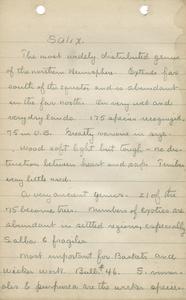 Salix.
The most widely distributed genus
of the northern Hemisphere. Extends far
south of the equator and is abundant
in the far north. On very wet and
very dry lands. 175 species recognized.
75 in U.S. Greatly various in size.
Wood soft light but tough - no dis-
tinction between heart and sap. Timber
very little used.
A very ancient genus. 21 of the
75 become trees. Members of exotics are
abundant in settled regions, especially
S. alba & fragilis
Most important for Baskets and
wicker work. Bull. 46. S. vimin-
alis & purpurea are the wicker species.